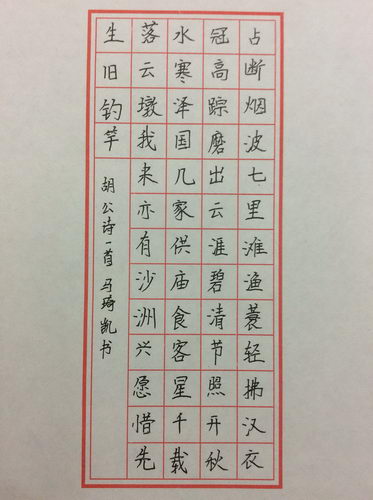 占断烟波七里滩渔蓑轻拂汉衣
冠高踪磨出云涯碧清节照开秋
水寒泽国几家供庙食客星千载
落云墩我来亦有沙洲兴愿惜先
生旧钓竿
胡公诗一首 马琦凯书